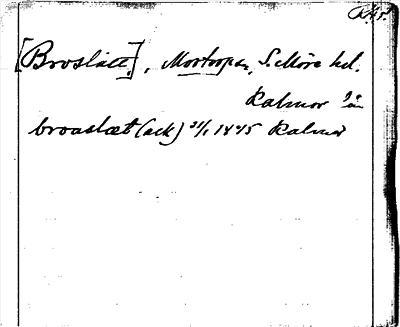 [Broslätt], Mortorps, S. Möre hd.
Kalmar län
broaslæt (ack) 21/1 1445 Kalmar